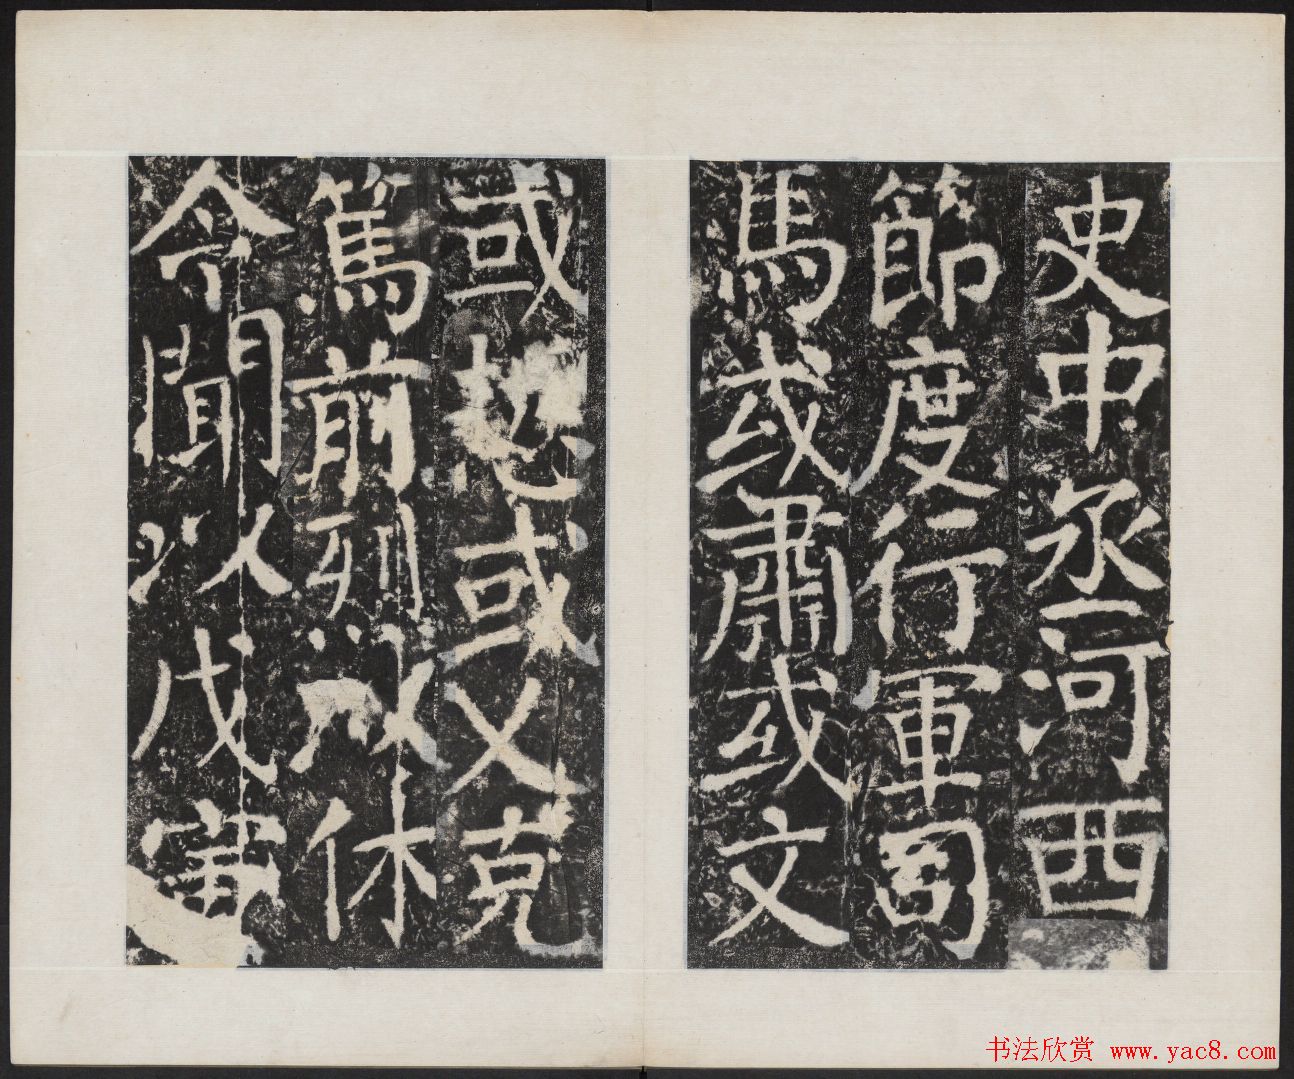 史中丞河西
節度行軍司
馬或肅或文
或悊或乂克
篤前烈以休
令聞以戊寅
书法欣赏 www.yac8.com